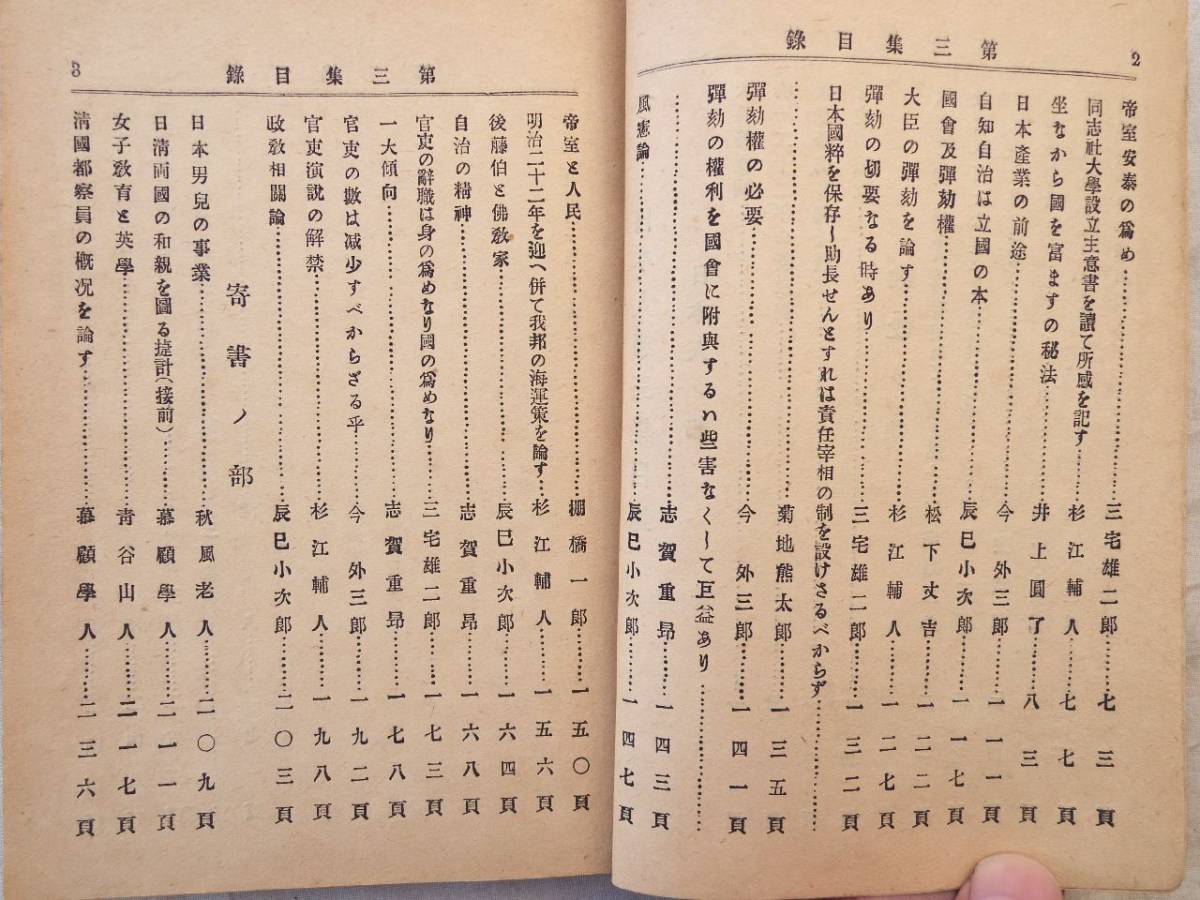 2
第三集目錄
帝室安泰の爲め……………三宅雄二郎………七三頁
同志社大學設立主意書を讀て所感を記す……杉江輔人……七七頁
坐なから國を富ますの秘法………井上圓了…八三頁
日本產業の前途………今外三郎……一一一頁
自知自治は立國の本………辰巳小次郎……一一七頁
國會及彈劾權………松下丈吉……一二二頁
大臣の彈劾を論す………杉江輔人……一二七頁
彈劾の切要なる時あり………三宅雄二郎……一三二頁
日本國粹を保存し助長せんとすれは責任宰相の制を設けさるべからず………
………菊地熊太郎……一三五頁
彈劾權の必要………今外三郎……一四一頁
彈劾の權利を國會に附與するハ些害なくして巨益あり………
………志賀重昂……一四三頁
風憲論………辰巳小次郎……一四七頁
3
第三集目錄
帝室と人民………棚橋一郎……一五〇頁
明治二十二年を迎へ併て我邦の海運策を論す…杉江輔人……一五六頁
後藤伯と佛敎家………辰巳小次郎……一六四頁
自治の精神………志賀重昂……一六八頁
官吏の辭職は身の爲めなり國の爲めなり………三宅雄二郎……一七三頁
一大傾向………志賀重昂……一七八頁
官吏の數は減少すべからざる乎………今外三郎……一九二頁
官吏演說の解禁………杉江輔人……一九八頁
政敎相關論………辰巳小次郎……二〇三頁
寄書ノ部
日本男兒の事業………秋風老人……二〇九頁
日淸両國の和親を圖る捷計(接前)………慕顧學人……二一一頁
女子敎育と英學………靑谷山人……二一七頁
淸國都察員の槪况を論す………慕顧學人……二三六頁